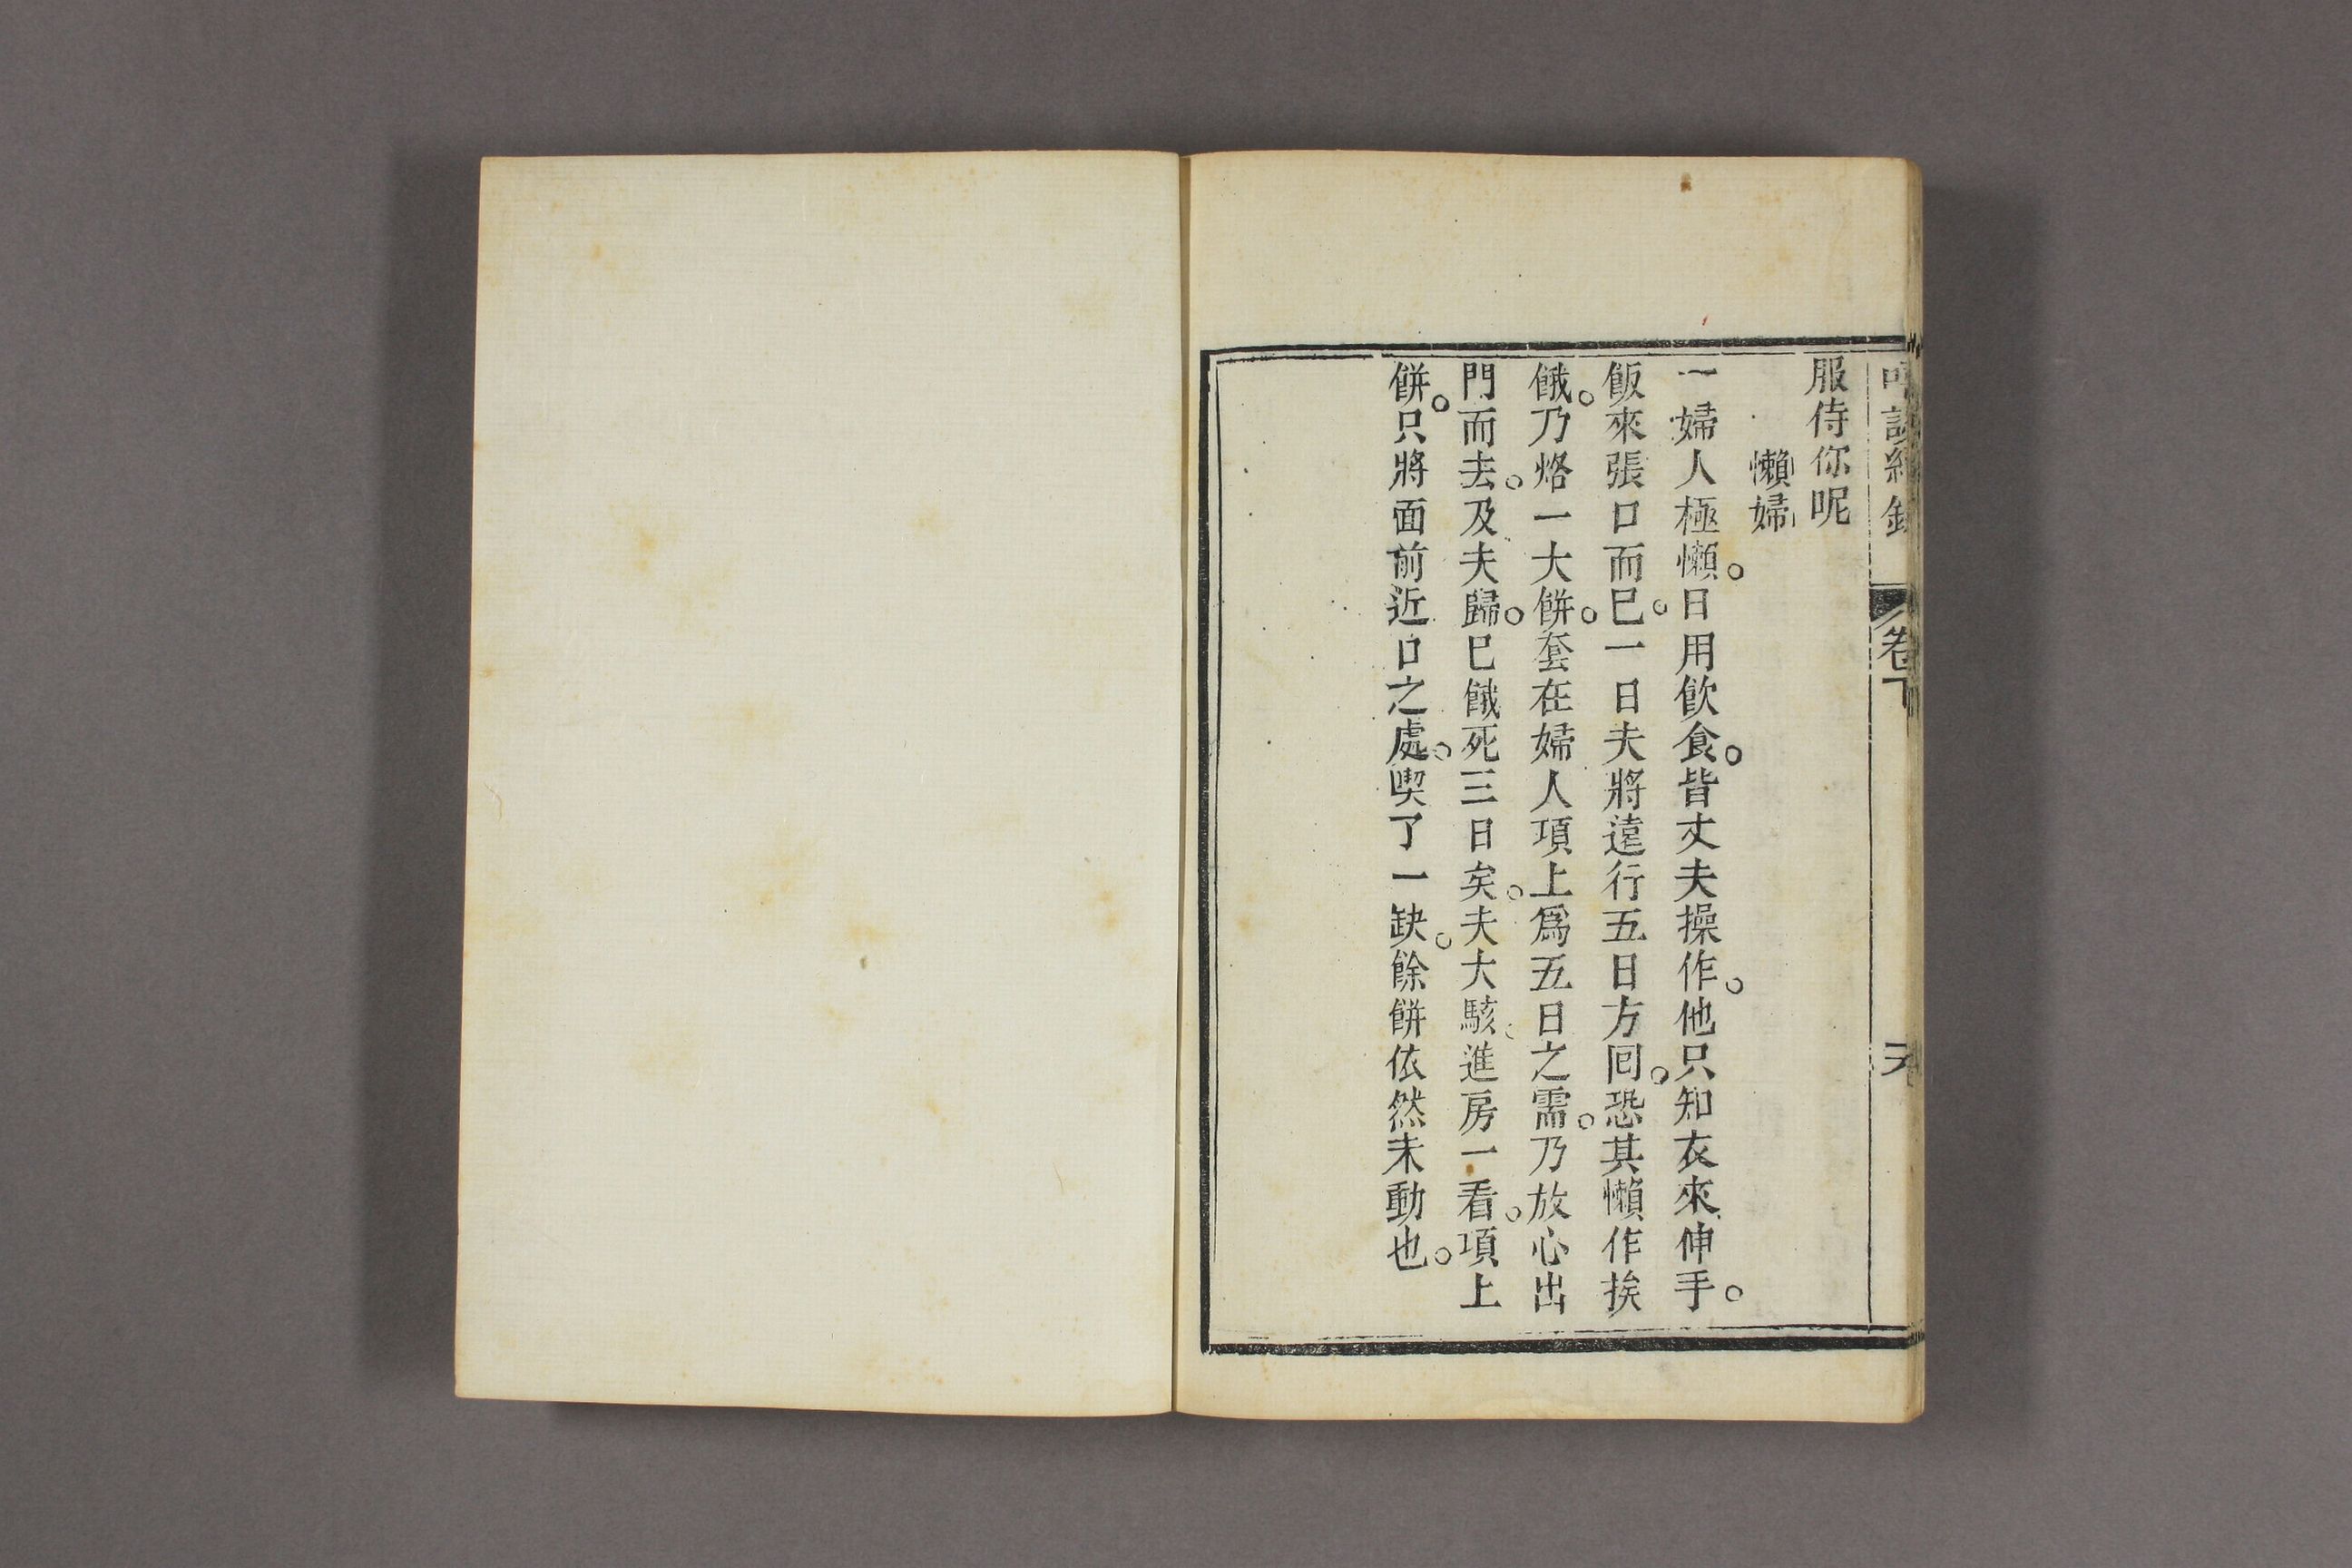 卷下
服侍你呢
懶婦
一婦人極懶。日用飲食。皆丈夫操作。他只知衣來伸手。
飯來張口而巳。一日夫將遠行五日方囘。恐其懶作挨
餓。乃烙一大餠。套在婦人項上爲五日之需。乃放心出
門而去。及夫歸。巳餓死三日矣。夫大駭。進房一看。項上
餠。只將面前近口之處。喫了一缺。餘餠依然未動也。